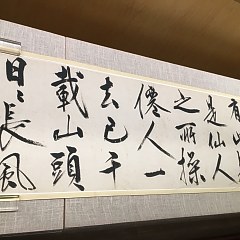 是仙人
之所操
僊人一
去已千
載山頭
日〻長風